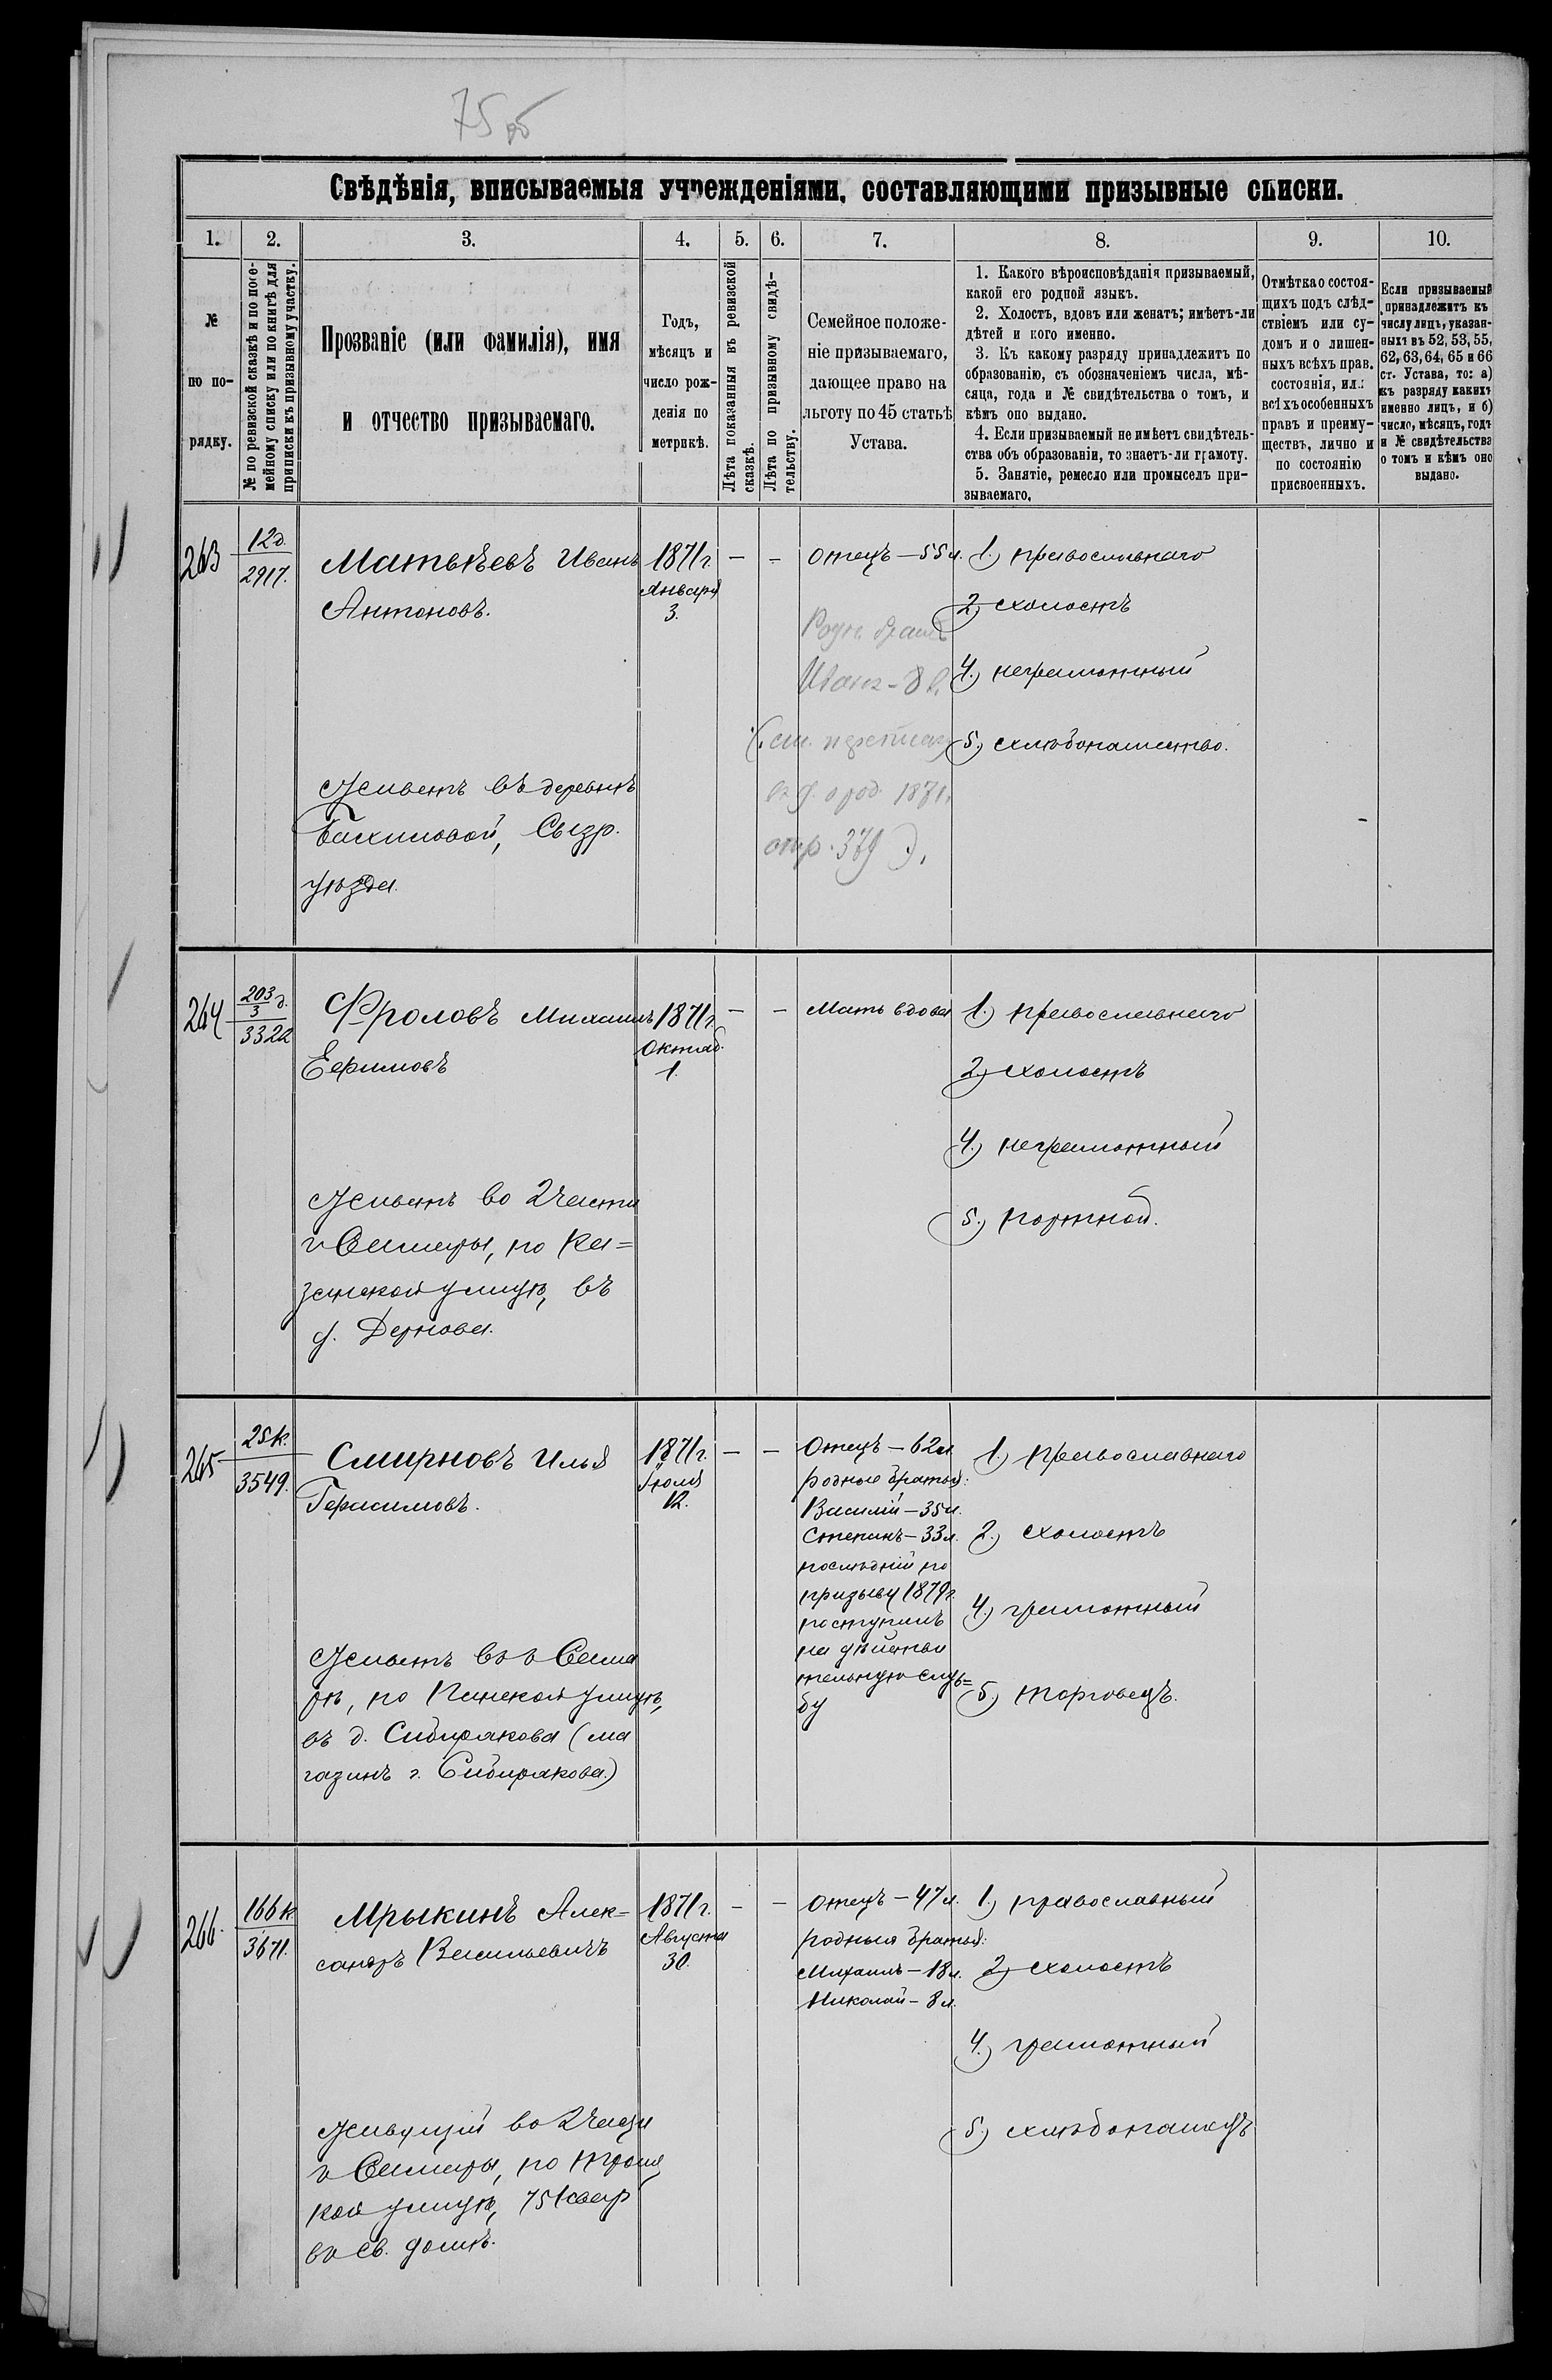 75 об
Свѣдѣнія, вписываемыя учрежденіями, составляющими призывные списки.
1. 2. 3. 4. 5. 6. 7. 8. 9. 10.
№ по порядку.
№ по ревизской сказкѣ и по посемейному списку или по книгѣ для приписки къ призывному участку.
Прозваніе (или фамилія), имя
и отчество призываемаго.
Годъ,
мѣсяцъ и
число рожденія по
метрикѣ.
Лѣта показанныя въ ревизской сказкѣ.
Лѣта по призывному свидѣтельству.
Семейное положе-
ніе призываемаго,
дающее право на
льготу по 45 статьѣ
Устава.
1. Какого вѣроисповѣданія призываемый,
какой его родной языкъ.
2. Холостъ, вдовъ или женатъ; имѣетъ-ли
дѣтей и кого именно.
3. Къ какому разряду принадлежитъ по
образованію, съ обозначеніемъ числа, мѣ-
сяца, года и № свидѣтельства о томъ, и
кѣмъ оно выдано.
4. Если призываемый не имѣетъ свидѣтель-
ства объ образованіи, то знаетъ-ли грамоту.
5. Занятіе, ремесло или промыселъ при-
зываемаго.
Отмѣтка о состоя-
щихъ подъ слѣд-
ствіемъ или су-
домъ и о лишен-
ныхъ всѣхъ прав.
состоянія, ил.:
всѣхъ особенныхъ
правъ и преиму-
ществъ, лично и
по состоянію
присвоенныхъ.
Если призываемый
принадлежитъ къ
числу лицъ, указан-
ныхъ въ 52, 53, 55,
62, 63, 64, 65 и 66
ст. Устава, то: а)
къ разряду какихъ
именно лицъ, и б)
число, мѣсяцъ, годъ
и № свидѣтельства
о томъ и кѣмъ оно
выдано.
263
12д.
2917.
Матвѣевъ Иванъ
Антоновъ.
Живетъ въ деревнѣ
Сызр.
уѣзда.
1871г.
Января
3.
— —
Отецъ — 55л.
Родн. братъ
Иванъ - 8 л.
въ 1871,
стр. 379
1.) православнаго
2.) холостъ
4.) неграмотный
5.) хлѣбопашество.
264
203/3 д.
3322
Фроловъ Михаилъ
Ефимовъ
Живетъ во 2 части
г Самары, по Ка=
занской улицѣ, въ
д. Дернова.
1871г.
Октяб.
1.
— —
Мать вдова
1.) православнаго
2.) холостъ
4.) неграмотный
5.) портной.
265
25к.
3549.
Смирновъ Илья
Герасимовъ.
Живетъ въ г Сама
рѣ, по Панской улицѣ,
въ д. Сибирякова (ма
газинъ г. Сибирякова.)
1871г.
Іюля
12.
— —
Отецъ — 62л.
родные братья:
Василій — 35л.
Степанъ — 33л.
послѣдній по
призыву 1879г.
поступилъ
на дѣйстви
тельную служ=
бу
1.) православнаго
2.) холостъ
4.) грамотный
5.) торговецъ.
266.
166к
3671.
Мрыкинъ Алек=
сандръ Васильевичъ
Живущій во 2 части
г Самары, по Троиц
кой улицѣ, 75 квар
въ св. домѣ.
1871г.
Августа
30.
— —
Отецъ — 47л.
родныя братья:
Михаилъ — 18л.
Николай — 8л.
1.) православный
2.) холостъ
4.) грамотный
5.) хлѣбопашецъ